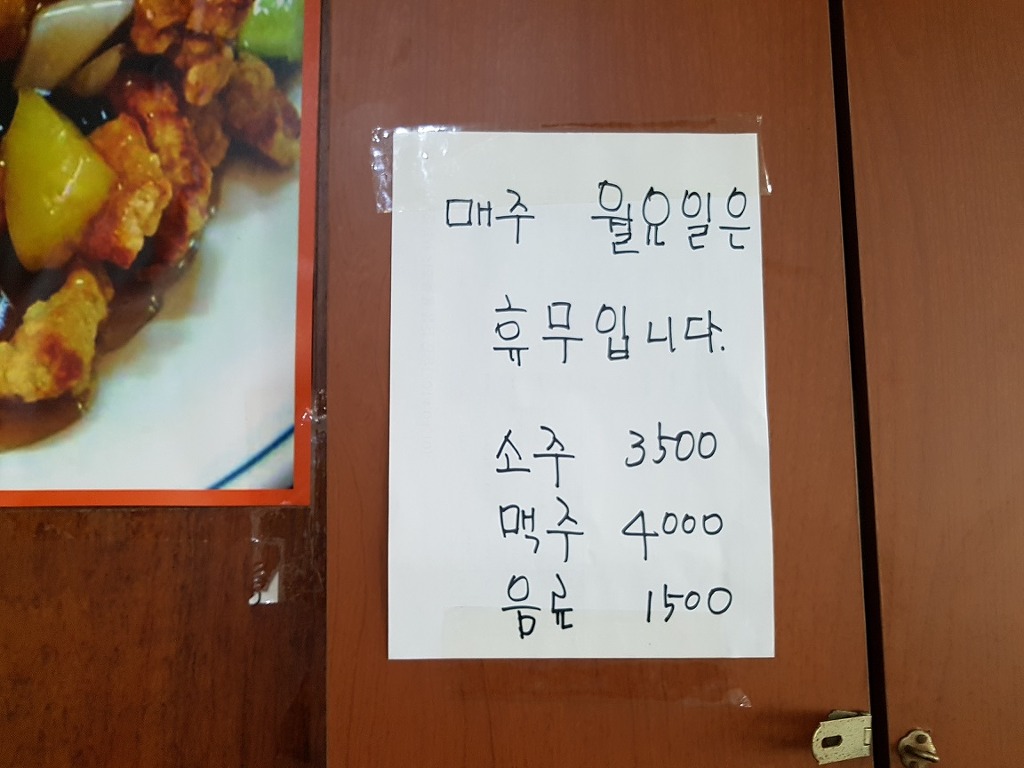 매주 월요일은
휴무입니다.
소주 3500
맥주 4000
음료 1500